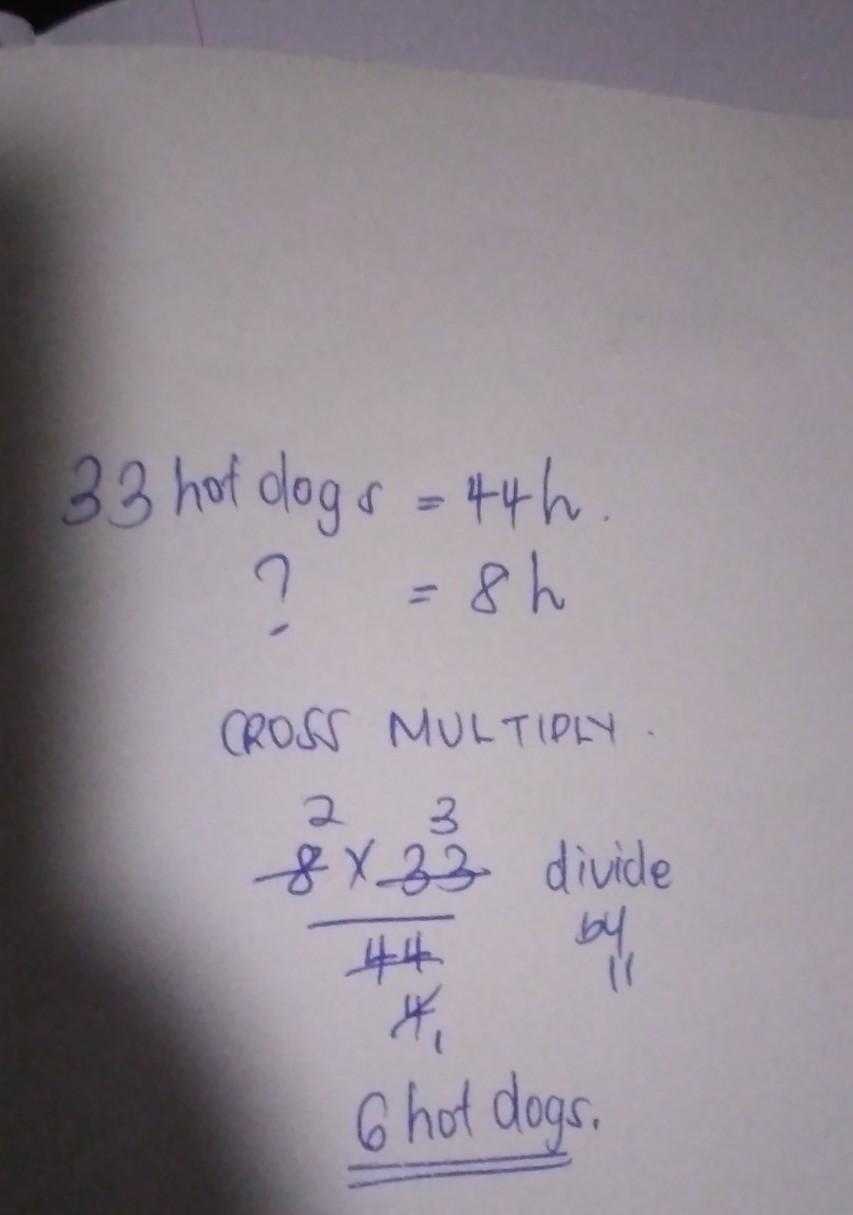 33 hot dogs = 44h.
? = 8h
CROSS MULTIPLY.
2 3
8 x 33 divide
44 by 11
4 1
6 hot dogs.